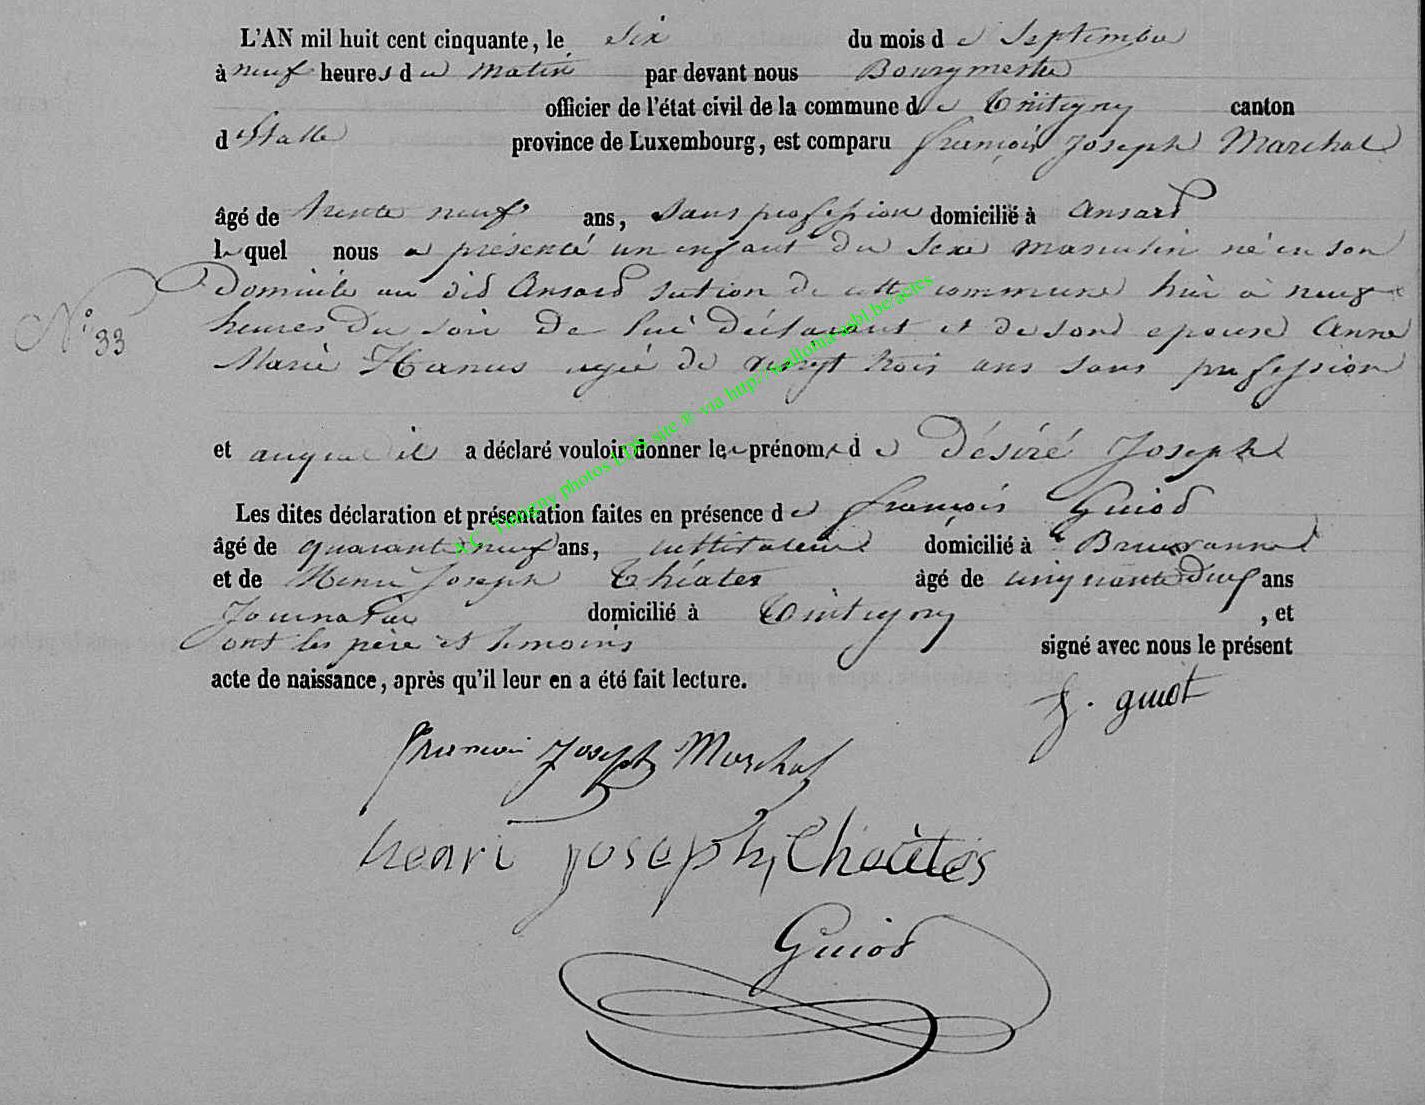 L'AN mil huit cent cinquante, le six du mois de Septembre
à neuf heures du matin par devant nous Bourgmestre
officier de l'état civil de la commune de Tintigny canton
d'Etalle province de Luxembourg, est comparu françois Joseph Marchal
âgé de trente neuf ans, sans profession domicilié à Ansard
lequel nous a présenté un enfant du sexe masculin né en son
Domicile au did Ansard section de cette commune hier à neuf
heures du soir de lui déclarant et de son epouse Anne
Marie Hanus agée de vingt trois ans sans profession
N° 33
et auquel il a déclaré vouloir donner les prénoms de Désiré Joseph
Les dites déclaration et présentation faites en présence de françois Guiod
âgé de quarante neuf ans, instituteur domicilié à
et de Henri Joseph Théates âgé de cinquante ans
Journalier domicilié à Tintigny, et
ont les père et temoins signé avec nous le présent
acte de naissance, après qu'il leur en a été fait lecture.
f. guiot
françois Joseph Marchal
henri joseph
Guiod
A.C. Tintigny photos LDS site ® via http://wallonia-asbl.be/actes